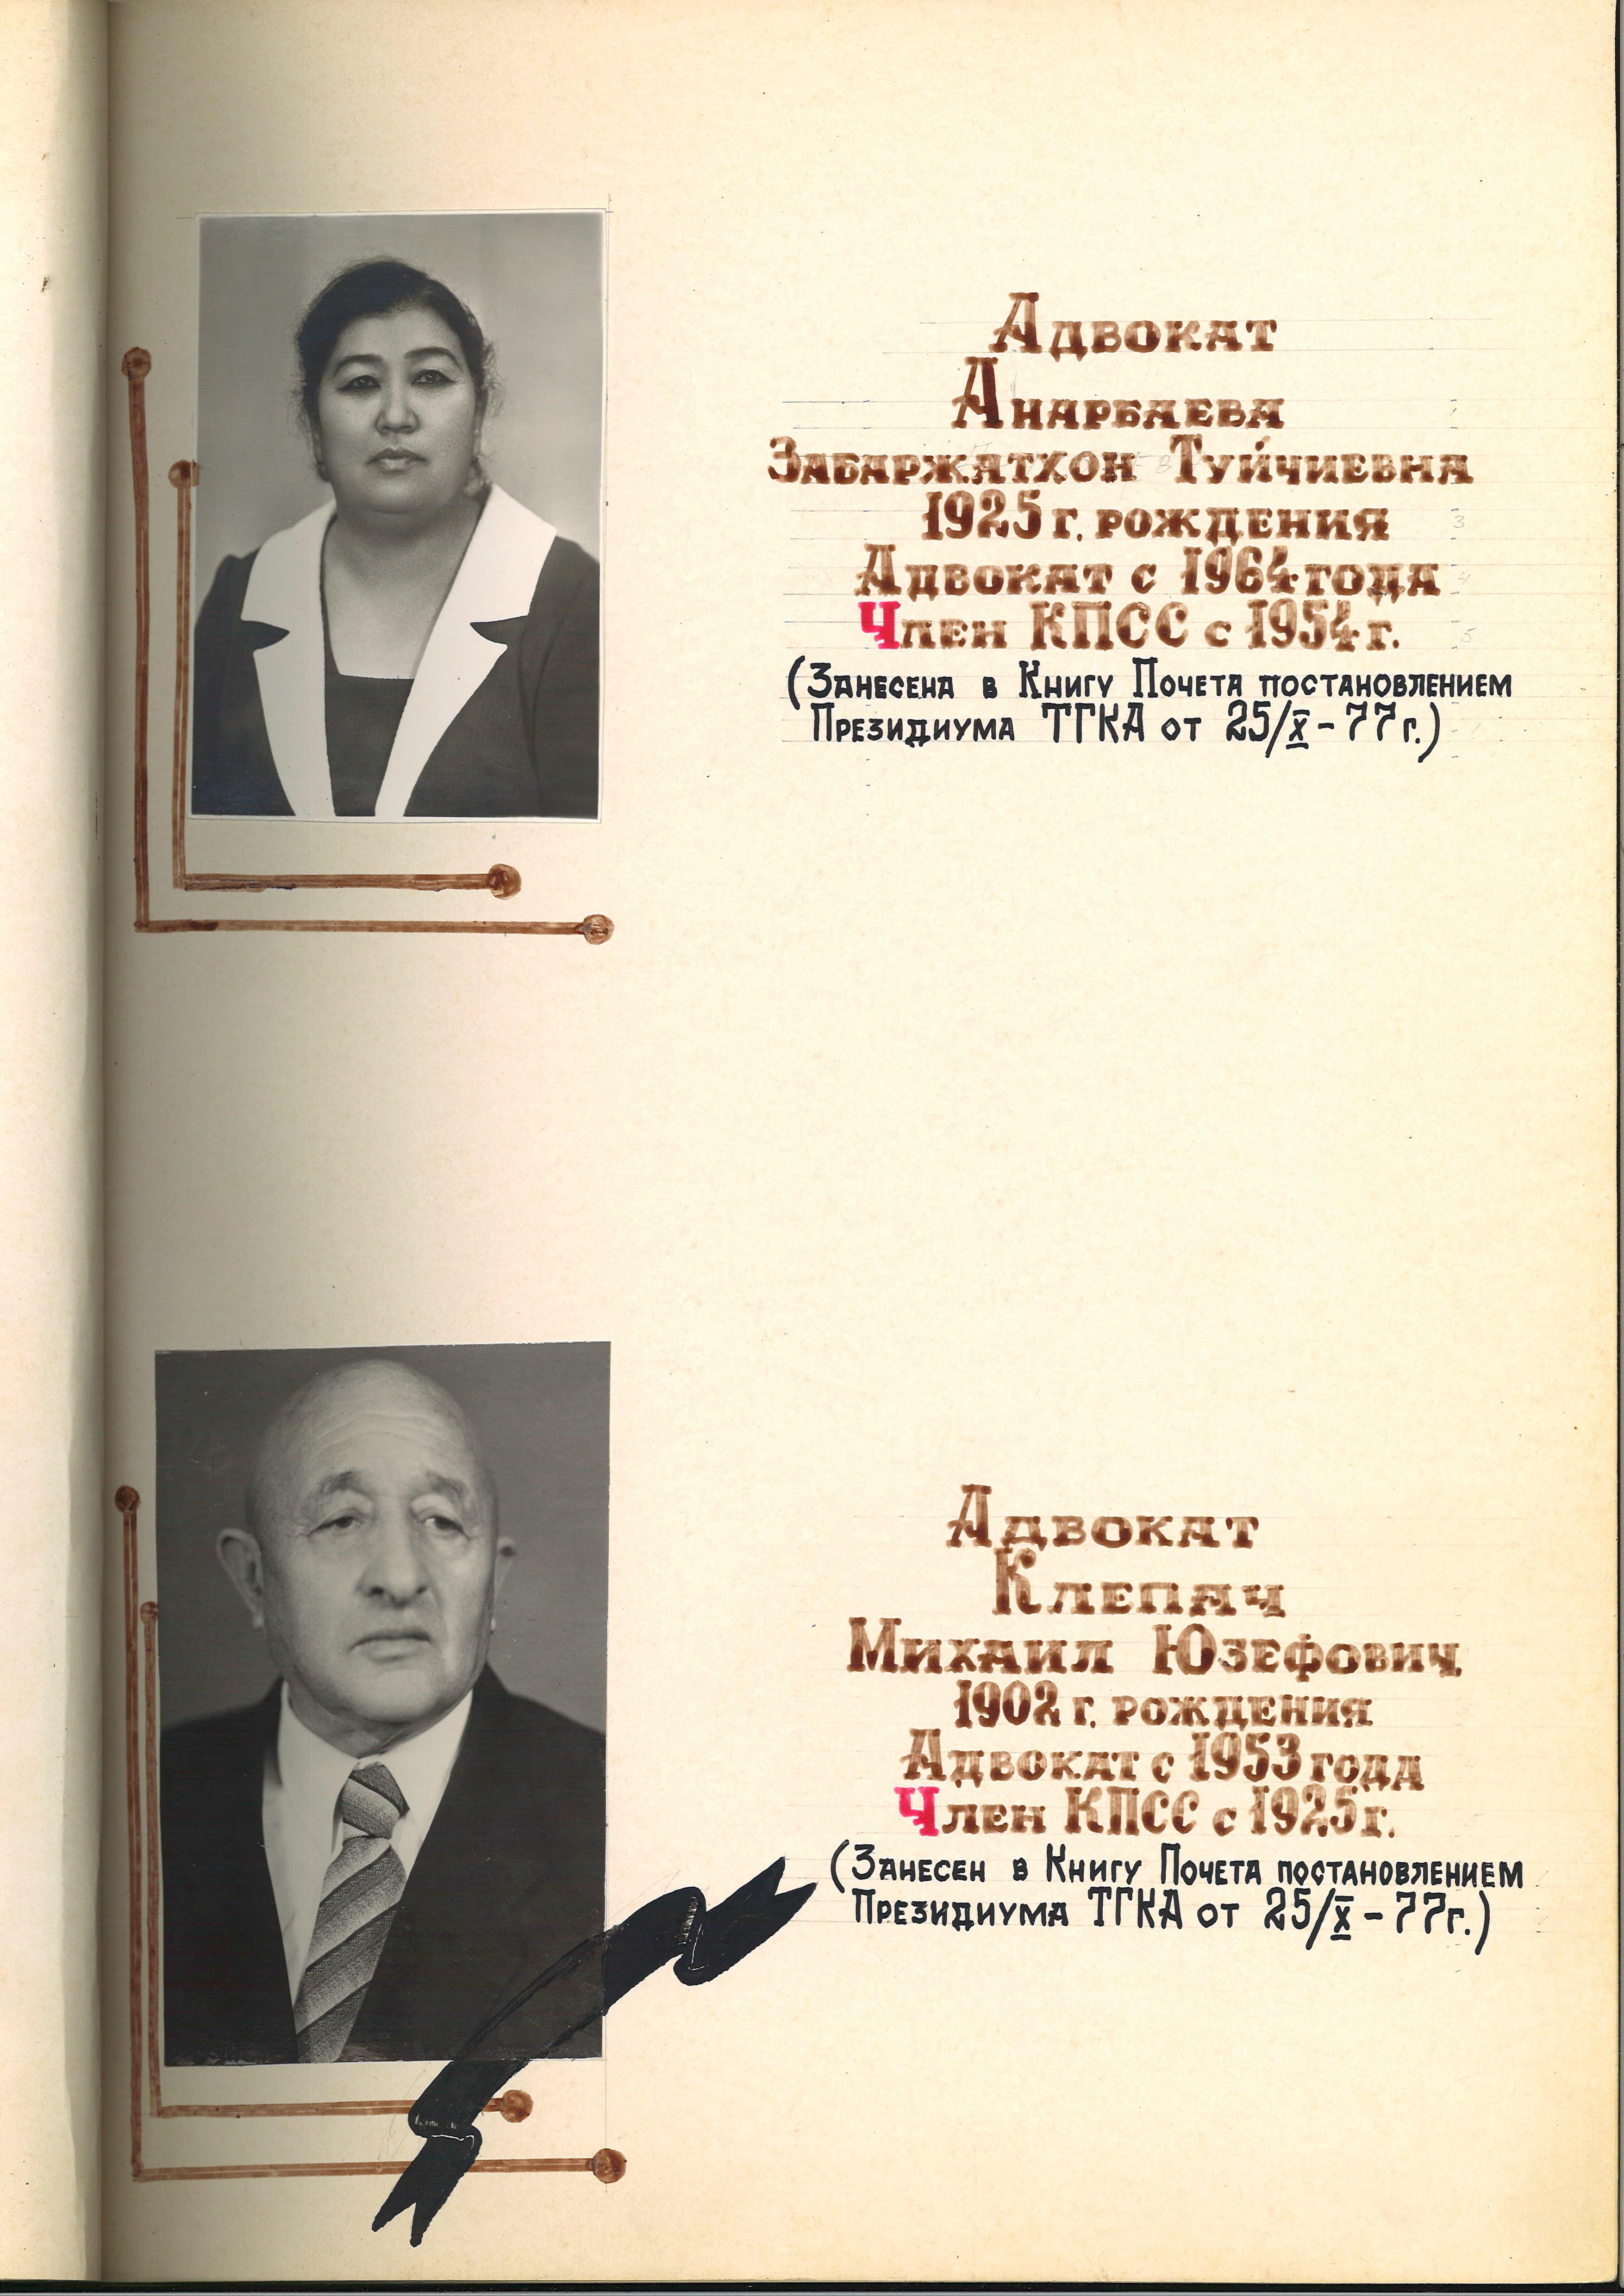 Адвокат
Анарбаева
Забаржатхон Туйчиевна
1925 г. рождения
Адвокат с 1964 года
Член КПСС с 1954 г.
(Занесена в Книгу Почета постановлением
Президиума ТГКА от 25/X - 77 г.)
Адвокат
Клепач
Михаил Юзефович
1902 г. рождения
Адвокат с 1953 года
Член КПСС с 1925 г.
(Занесен в Книгу Почета постановлением
Президиума ТГКА от 25/X - 77 г.)